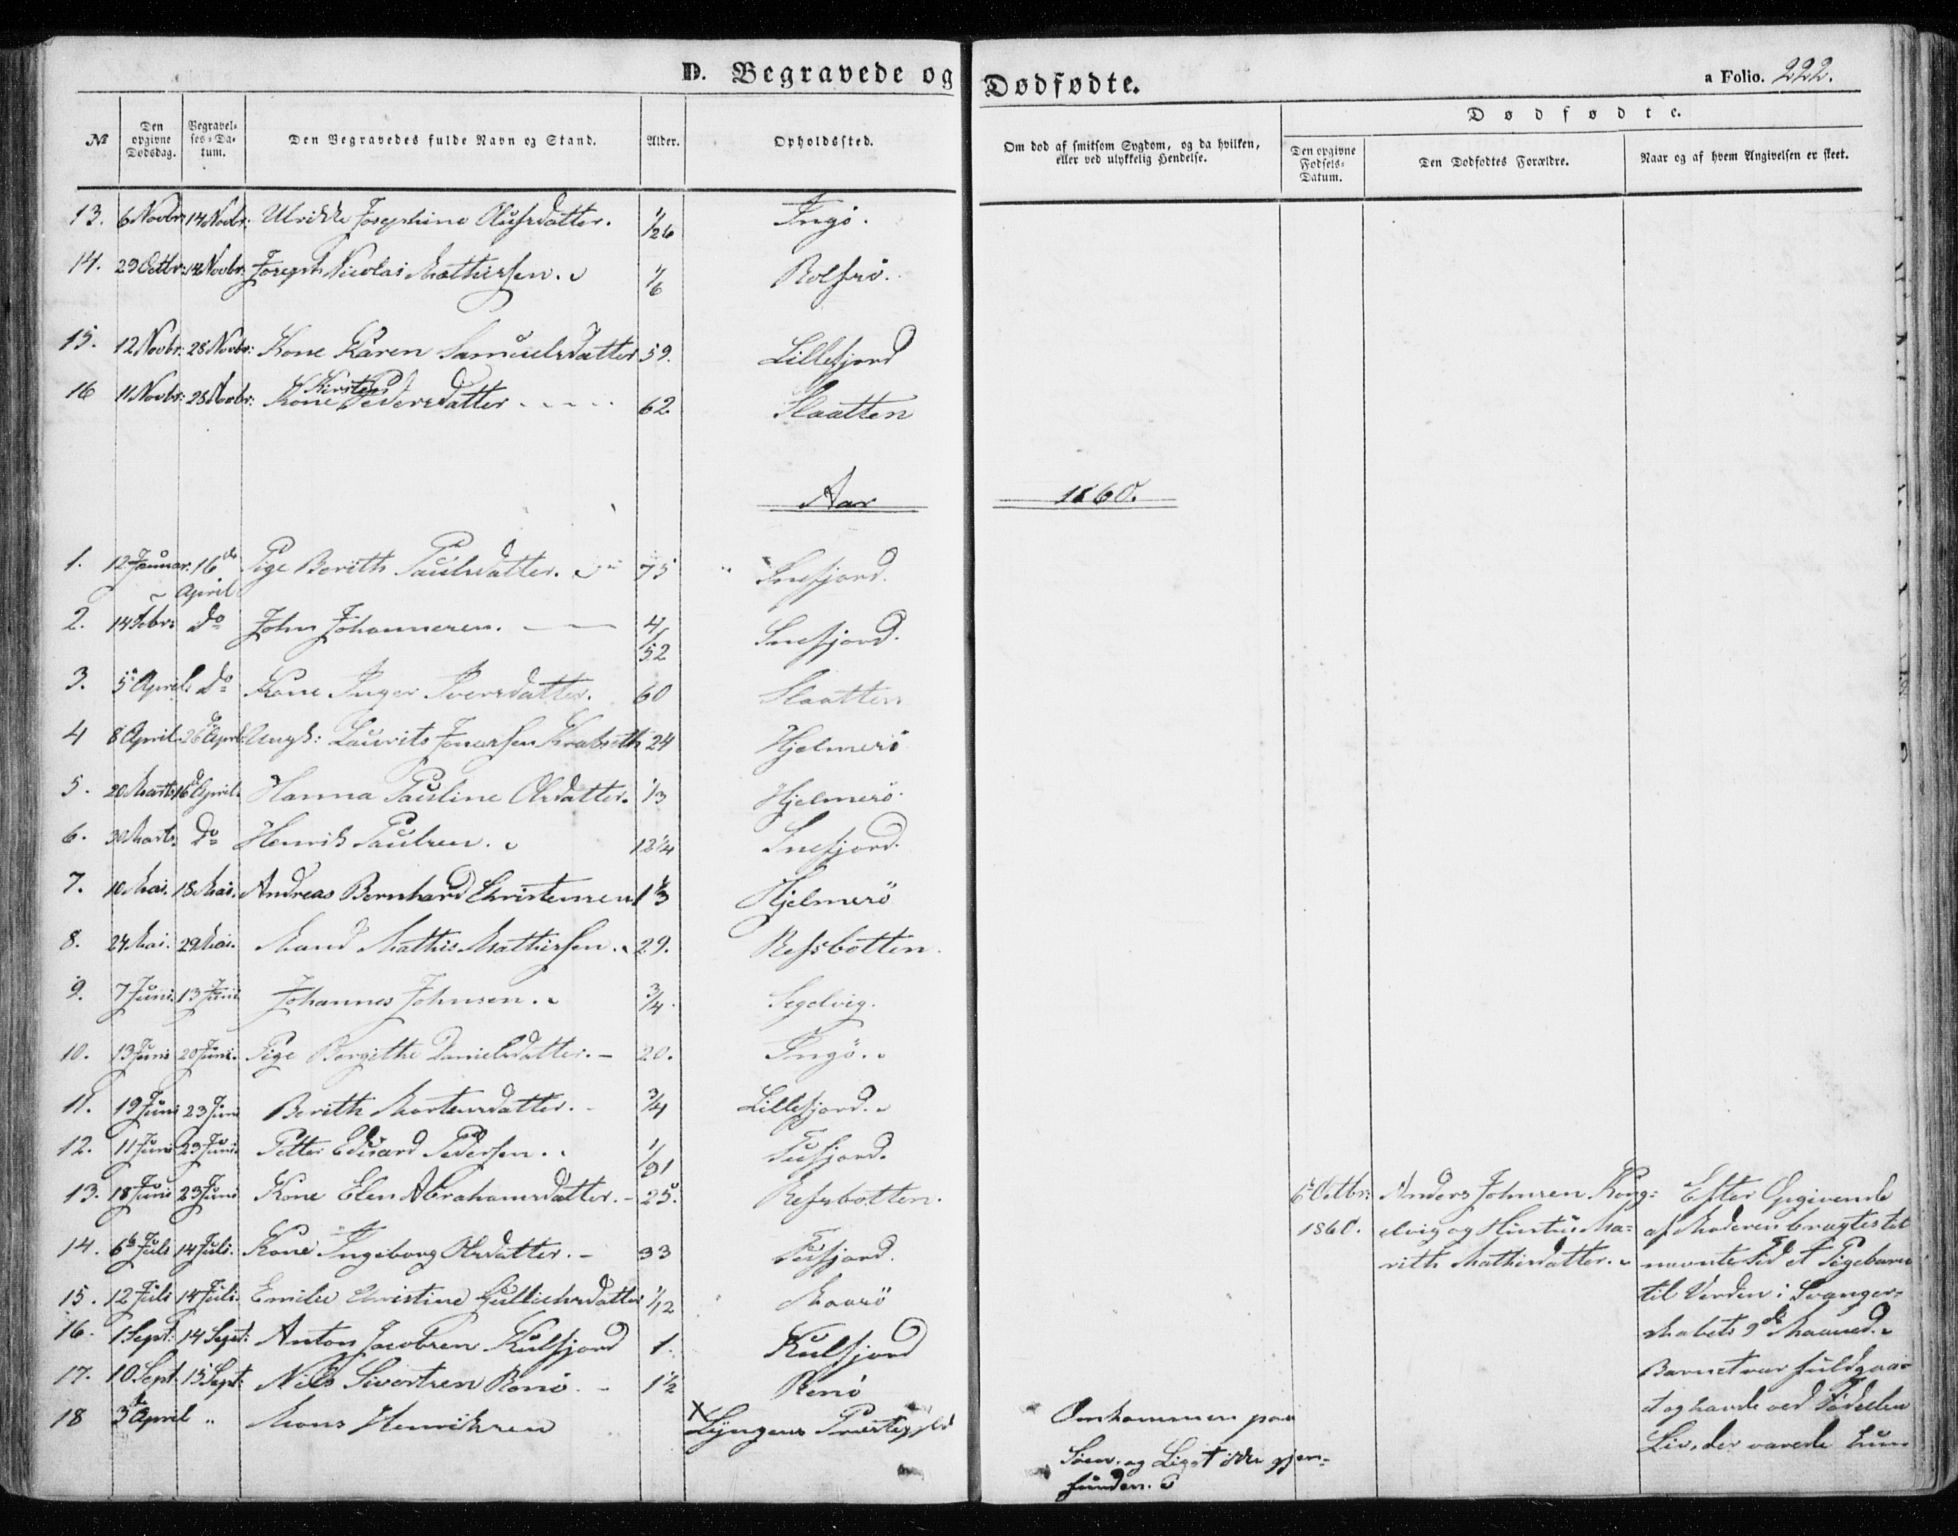 D. Begravede og Dødfødte.
a Folio. 222.
№
Den opgivne Dødsdag.
Begravel-
ses-Da-
tum.
Den Begravedes fulde Navn og Stand.
Alder.
Opholdssted.
Om død af smitsom Sygdom, og da hvilken,
eller ved ulykkelig Hendelse.
Dødfødte.
Den opgivne
Fødsels-
Datum.
Den Dødfødtes Forældre.
Naar og af hvem Angivelsen er skeet.
13. 6 Novbr: 14 Novbr: Ulrikke Josephine Olufsdatter. 1/26 Ingö.
14. 29 Octbr: 14 Novbr: Joseph Nicolai Mathisen. 1/6 Rolfsö.
15. 12 Novbr: 28 Novbr: Kone Karen Samuelsdatter 59. Lillefjord
16 11 Novbr: 28 Novbr: Kone Kirsten Pedersdatter 62. Slaatten
Aar 1860.
1. 12 Januar. 16de April Pige Berith Paulsdatter. 75 Snefjord.
2. 14 Febr: Do John Johannesen. 4/52 Snefjord.
3. 5 April. Do Kone Inger Iversdatter. 60 Slaatten
4 8 April. 26 April. Ungk: Laurits Jonassen 24 Hjelmsö
5. 20 Marts 16 April. Hanna Pauline Olsdatter. 1/3 Hjelmsö.
6. 30 Marts. Do Henrik Paulsen. 12 1/4 Snefjord.
7. 10 Mai. 18 Mai. Andreas Bernhard Christensen 1 1/3 Hjelmsö
8. 24 Mai. 29 Mai. Mand Mathis Mathissen. 29. Refsbotten.
9. 7 Juni. 13 Juni Johannes Johnsen. 3/4. Segelvig.
10. 13 Juni 20 Juni. Pige Bergithe Danielsdatter. 20. Ingö.
11. 19 Juni 23 Juni Berith Mortensdatter. 3/4 Lillefjord.
12. 11 Juni 23 Juni Petter Edvard Pedersen. 1/31 Tufjord.
13. 18 Juni 23 Juni Kone Elen Abrahamsdatter. 25. Refsbotten.
14. 6 Juli 14 Juli. Kone Ingeborg Olsdatter. 33 Tufjord.
15. 12 Juli 14 Juli. Emilie Christine Gullichsdatter 1/12 Maasö
16. 1 Sept: 14 Sept: Anton Jacobsen Kulfjord 1. Kulfjord
17. 10 Sept 15 Sept: Nils Sivertsen Renö. 1 1/2 Renö
18 3 April " Mons Henriksen X Lyngens Præstegjeld
Omkommen paa
Søen, og Liget ikke gjen-
funden.
6 Octbr:
1860.
Anders Johnsen Kong-
elvig og Hustru Ma-
rith Mathisdatter.
Efter Opgivende
af Moderen bragtes til
nævnte tid et Pigebarn
til Verden i Svanger-
skabets 9de Maaned.
Barnet var fuldgaa-
et og havde ved Fødselen
Liv, der varede kun